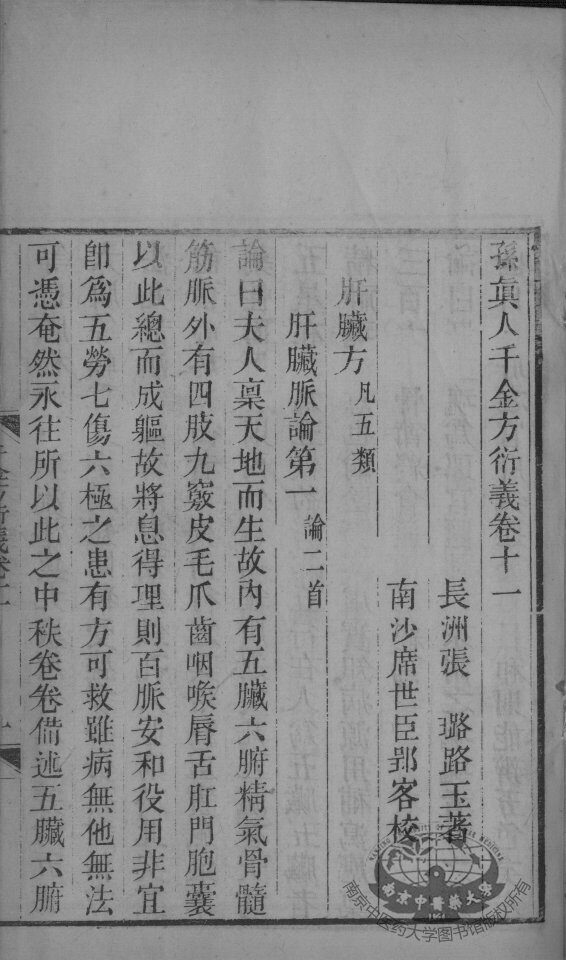 孫眞人千金方衍義卷十一
長洲張　璐路玉著
南沙席世臣郢客校
肝臟方凡五類
肝臟脈論第一論二首
論曰夫人稟天地而生故內有五臟六腑精氣骨髓
筋脈外有四肢九竅皮毛爪齒咽喉脣舌肛門胞囊
以此總而成軀故將息得理則百脈安和役用非宜
卽爲五勞七傷六極之患有方可救雖病無他無法
可憑奄然永往所以此之中秩卷卷備述五臟六腑
千金方衍義卷十一
一
南京中醫藥大學
南京中医药大学图书馆版权所有